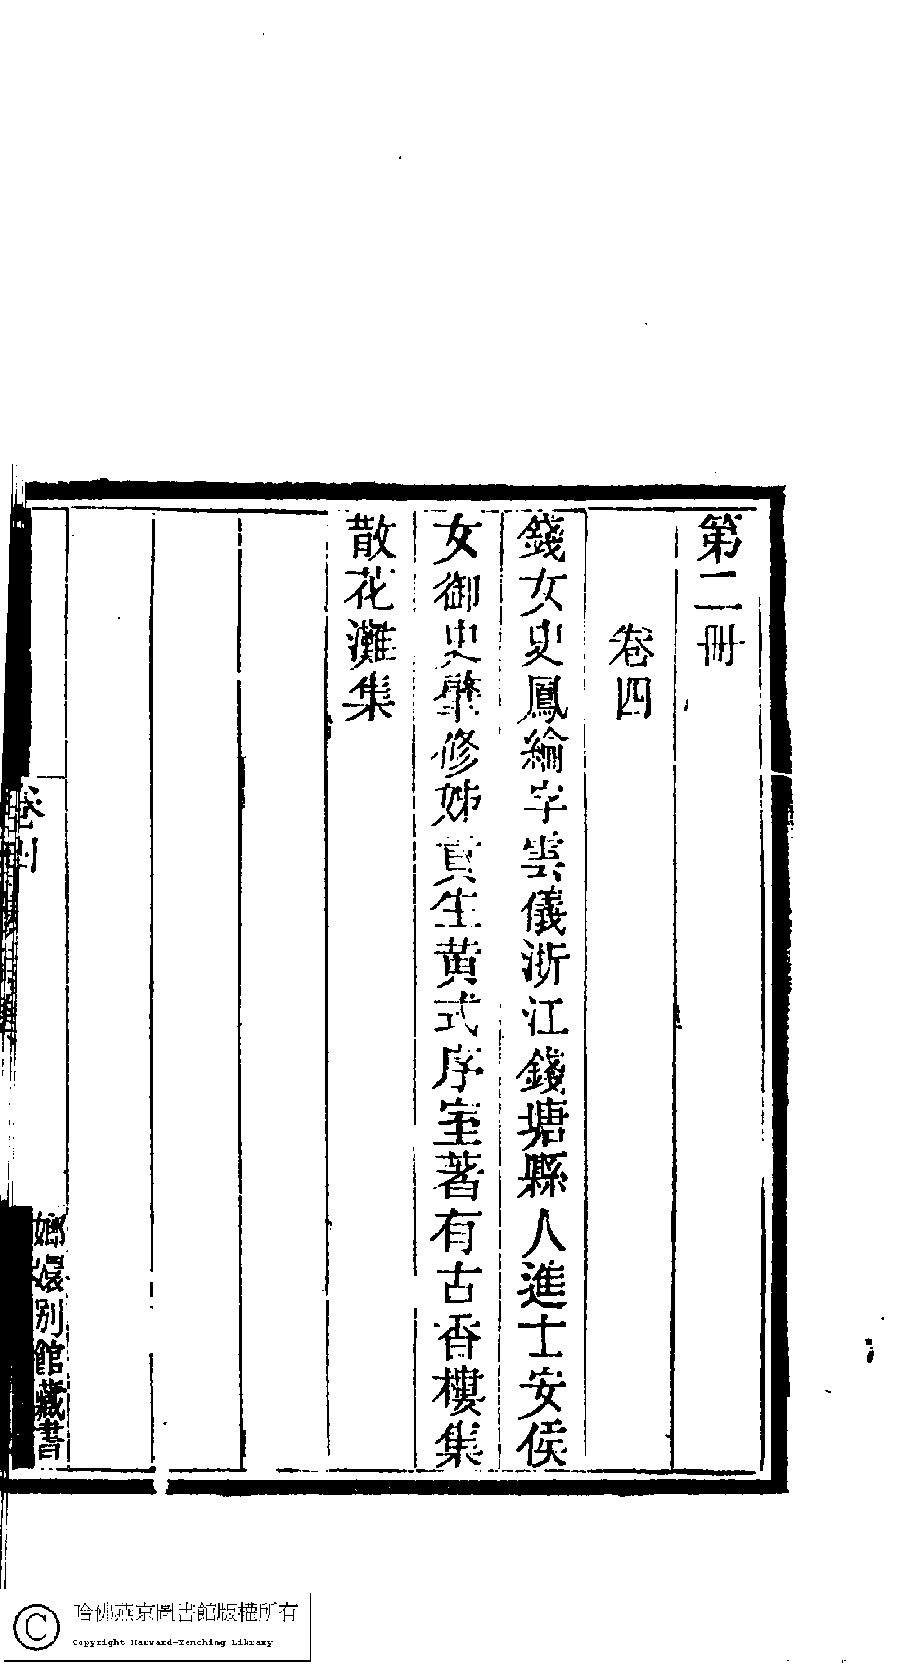 第二冊
卷四
錢女史鳳綸字雲儀浙江錢塘縣人進士安侯
女御史肇修姊貢生黄式序室著有古香樓集
散花灘集
卷四
嫏嬛別館藏書
哈佛燕京圖書館版權所有
Copyright Harvard-Yenching Library